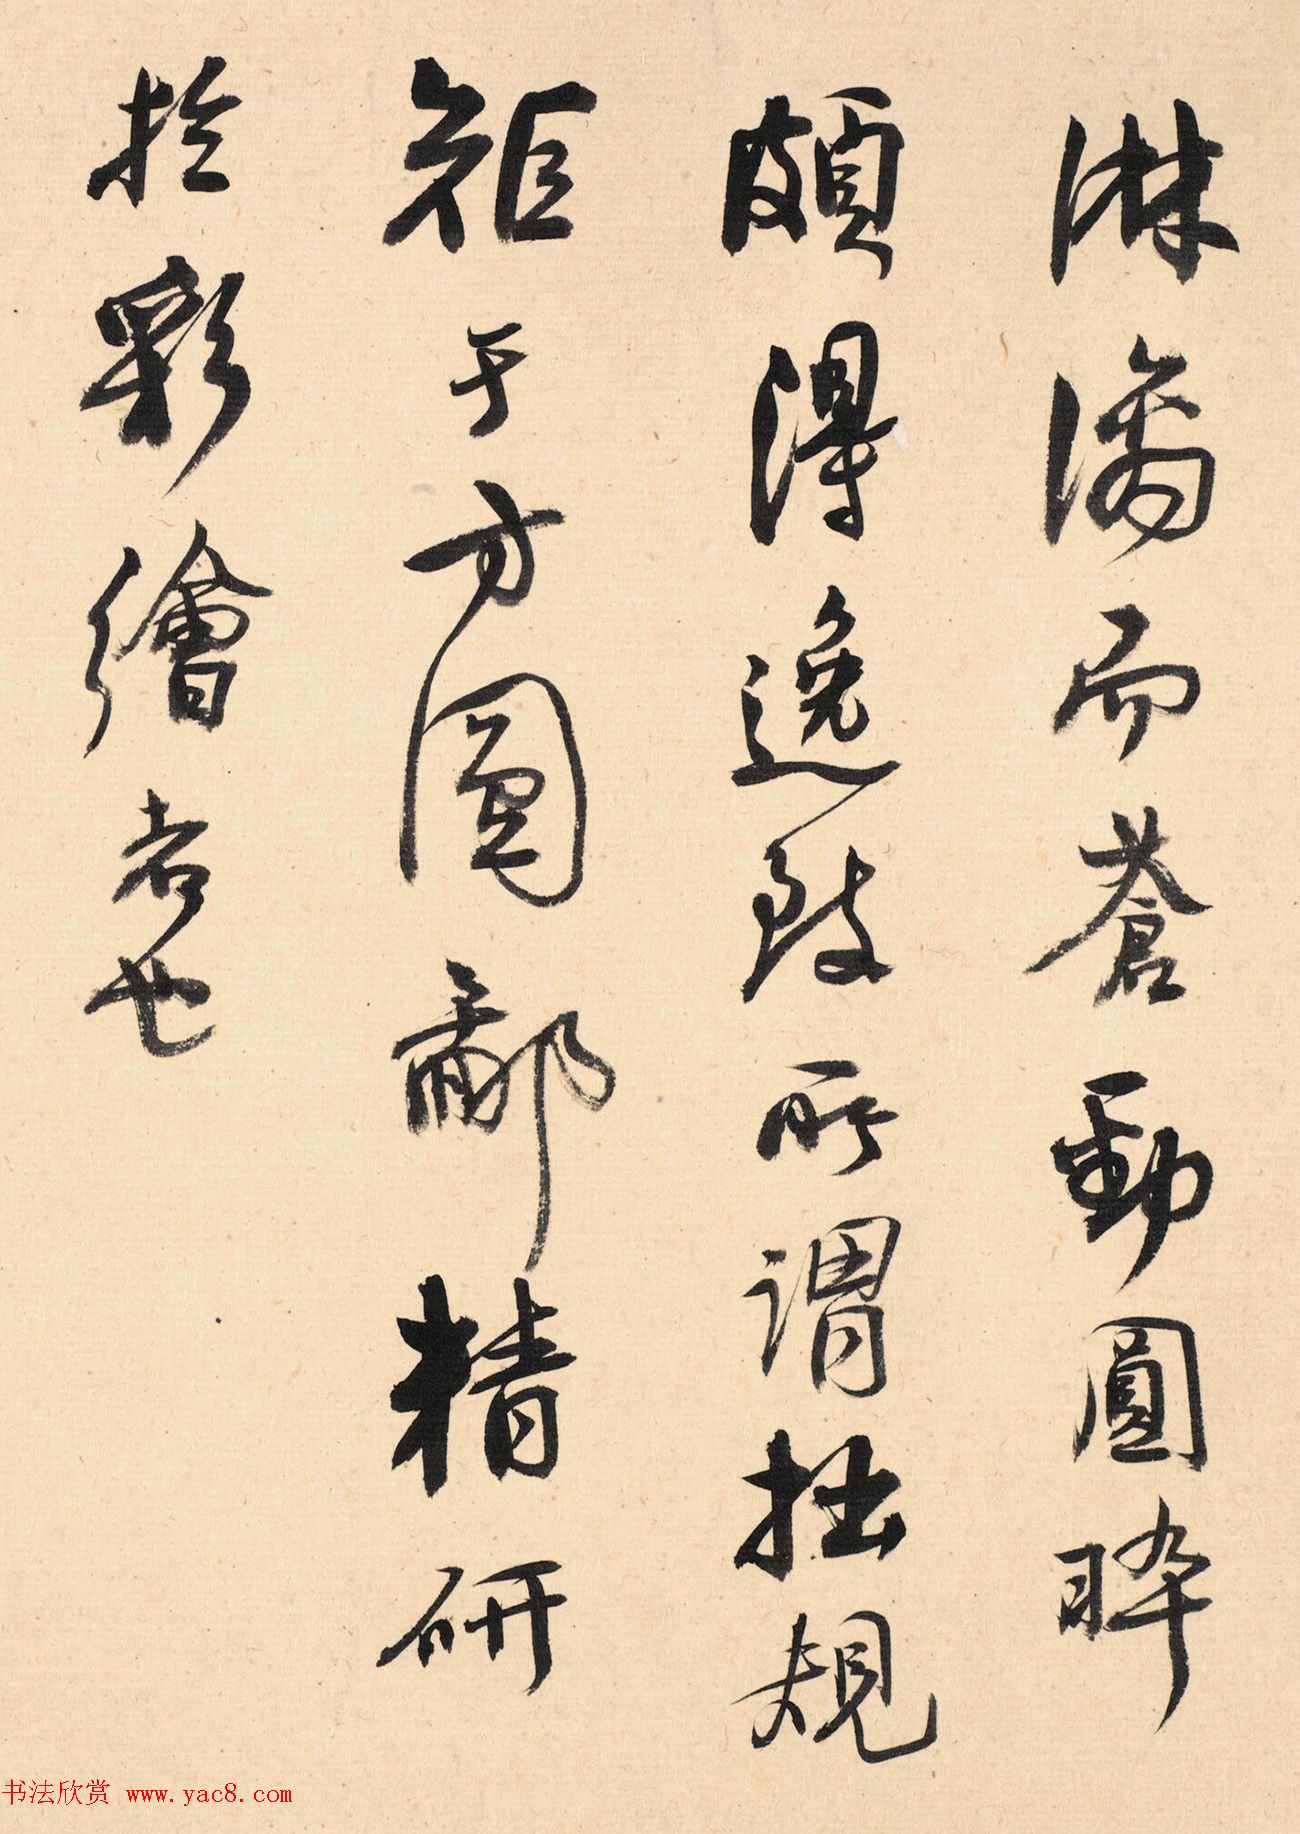 淋漓而蒼勁圓晬
頗得逸致所謂拙規
矩于方圓鄙精研
於彩繪者也
书法欣赏 www.yac8.com